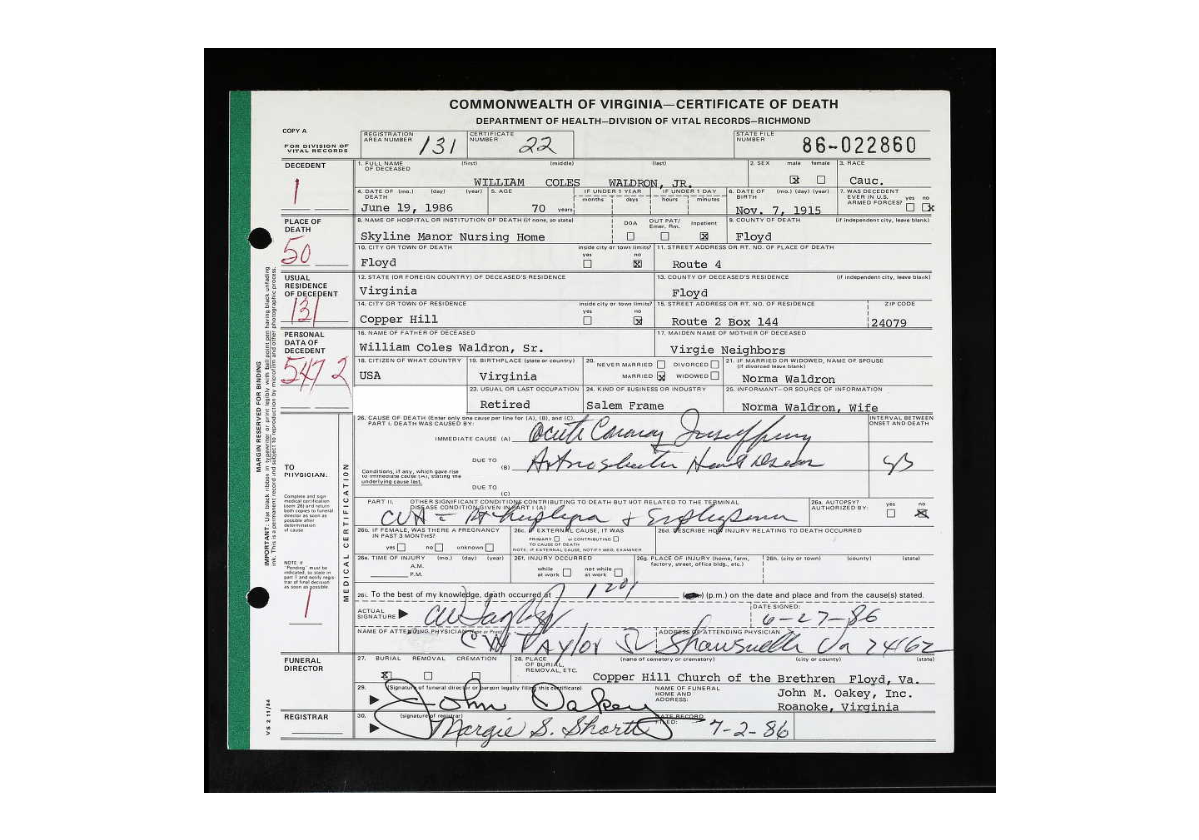 COMMONWEALTH OF VIRGINIA—CERTIFICATE OF DEATH
DEPARTMENT OF HEALTH—DIVISION OF VITAL RECORDS—RICHMOND
COPY A
FOR DIVISION OF VITAL RECORDS
REGISTRATION AREA NUMBER 131
CERTIFICATE NUMBER 22
STATE FILE NUMBER 86-022860
DECEDENT
1
1. FULL NAME OF DECEASED (first) (middle) (last)
WILLIAM COLES WALDRON, JR.
2. SEX male female
3. RACE
Cauc.
4. DATE OF DEATH (mo.) (day) (year)
June 19, 1986
5. AGE
70 years
IF UNDER 1 YEAR months days
IF UNDER 1 DAY hours minutes
6. DATE OF BIRTH (mo.) (day) (year)
Nov. 7, 1915
7. WAS DECEDENT EVER IN U.S. ARMED FORCES? yes no
PLACE OF DEATH
50
8. NAME OF HOSPITAL OR INSTITUTION OF DEATH (if none, so state)
Skyline Manor Nursing Home
DOA OUT PAT/ Emer. Rm. Inpatient
9. COUNTY OF DEATH (if independent city, leave blank)
Floyd
10. CITY OR TOWN OF DEATH
Floyd
inside city or town limits? yes no
11. STREET ADDRESS OR RT. NO. OF PLACE OF DEATH
Route 4
USUAL RESIDENCE OF DECEDENT
131
12. STATE (OR FOREIGN COUNTRY) OF DECEASED'S RESIDENCE
Virginia
13. COUNTY OF DECEASED'S RESIDENCE (if independent city, leave blank)
Floyd
14. CITY OR TOWN OF RESIDENCE
Copper Hill
inside city or town limits? yes no
15. STREET ADDRESS OR RT. NO. OF RESIDENCE
Route 2 Box 144
ZIP CODE
24079
PERSONAL DATA OF DECEDENT
547 2
16. NAME OF FATHER OF DECEASED
William Coles Waldron, Sr.
17. MAIDEN NAME OF MOTHER OF DECEASED
Virgie Neighbors
18. CITIZEN OF WHAT COUNTRY
USA
19. BIRTHPLACE (state or country)
Virginia
20. NEVER MARRIED DIVORCED
MARRIED WIDOWED
21. IF MARRIED OR WIDOWED, NAME OF SPOUSE
(if divorced leave blank)
Norma Waldron
23. USUAL OR LAST OCCUPATION
Retired
24. KIND OF BUSINESS OR INDUSTRY
Salem Frame
25. INFORMANT—OR SOURCE OF INFORMATION
Norma Waldron, Wife
MARGIN RESERVED FOR BINDING
TO PHYSICIAN:
Complete and sign medical certification (item 26) and return both copies to funeral director as soon as possible after determination of cause
1
MEDICAL CERTIFICATION
26. CAUSE OF DEATH (Enter only one cause per line for (A), (B), and (C).
PART I. DEATH WAS CAUSED BY:
INTERVAL BETWEEN ONSET AND DEATH
IMMEDIATE CAUSE (A) Acute Coronary
Conditions, if any, which gave rise to immediate cause (A), stating the underlying cause last.
DUE TO (B) Heart Disease
DUE TO (C)
PART II. OTHER SIGNIFICANT CONDITIONS CONTRIBUTING TO DEATH BUT NOT RELATED TO THE TERMINAL DISEASE CONDITION GIVEN IN PART I (A)
CVA
26a. AUTOPSY? AUTHORIZED BY: yes no
26b. IF FEMALE, WAS THERE A PREGNANCY IN PAST 3 MONTHS?
yes no unknown
26c. IF EXTERNAL CAUSE, IT WAS
PRIMARY or CONTRIBUTING
TO CAUSE OF DEATH
NOTE: IF EXTERNAL CAUSE, NOTIFY MED. EXAMINER
26d. DESCRIBE HOW INJURY RELATING TO DEATH OCCURRED
26e. TIME OF INJURY (mo.) (day) (year)
A.M.
P.M.
26f. INJURY OCCURRED
while at work not while at work
26g. PLACE OF INJURY (home, farm, factory, street, office bldg., etc.)
26h. (city or town) (county) (state)
26i. To the best of my knowledge, death occurred at 1201 (p.m.) on the date and place and from the cause(s) stated.
ACTUAL SIGNATURE
DATE SIGNED:
6-27-86
NAME OF ATTENDING PHYSICIAN (Type or Print)
CW TAYLOR
ADDRESS OF ATTENDING PHYSICIAN
Shawsville Va 24162
FUNERAL DIRECTOR
27. BURIAL REMOVAL CREMATION
28. PLACE OF BURIAL, REMOVAL, ETC. (name of cemetery or crematory) (city or county) (state)
Copper Hill Church of the Brethren Floyd, Va.
29. (Signature of funeral director or person legally filing this certificate)
John Oakey
NAME OF FUNERAL HOME AND ADDRESS:
John M. Oakey, Inc.
Roanoke, Virginia
REGISTRAR
30. (signature of registrar)
Margie S. Shortt
DATE RECORD FILED:
7-2-86
VS 2 11/84